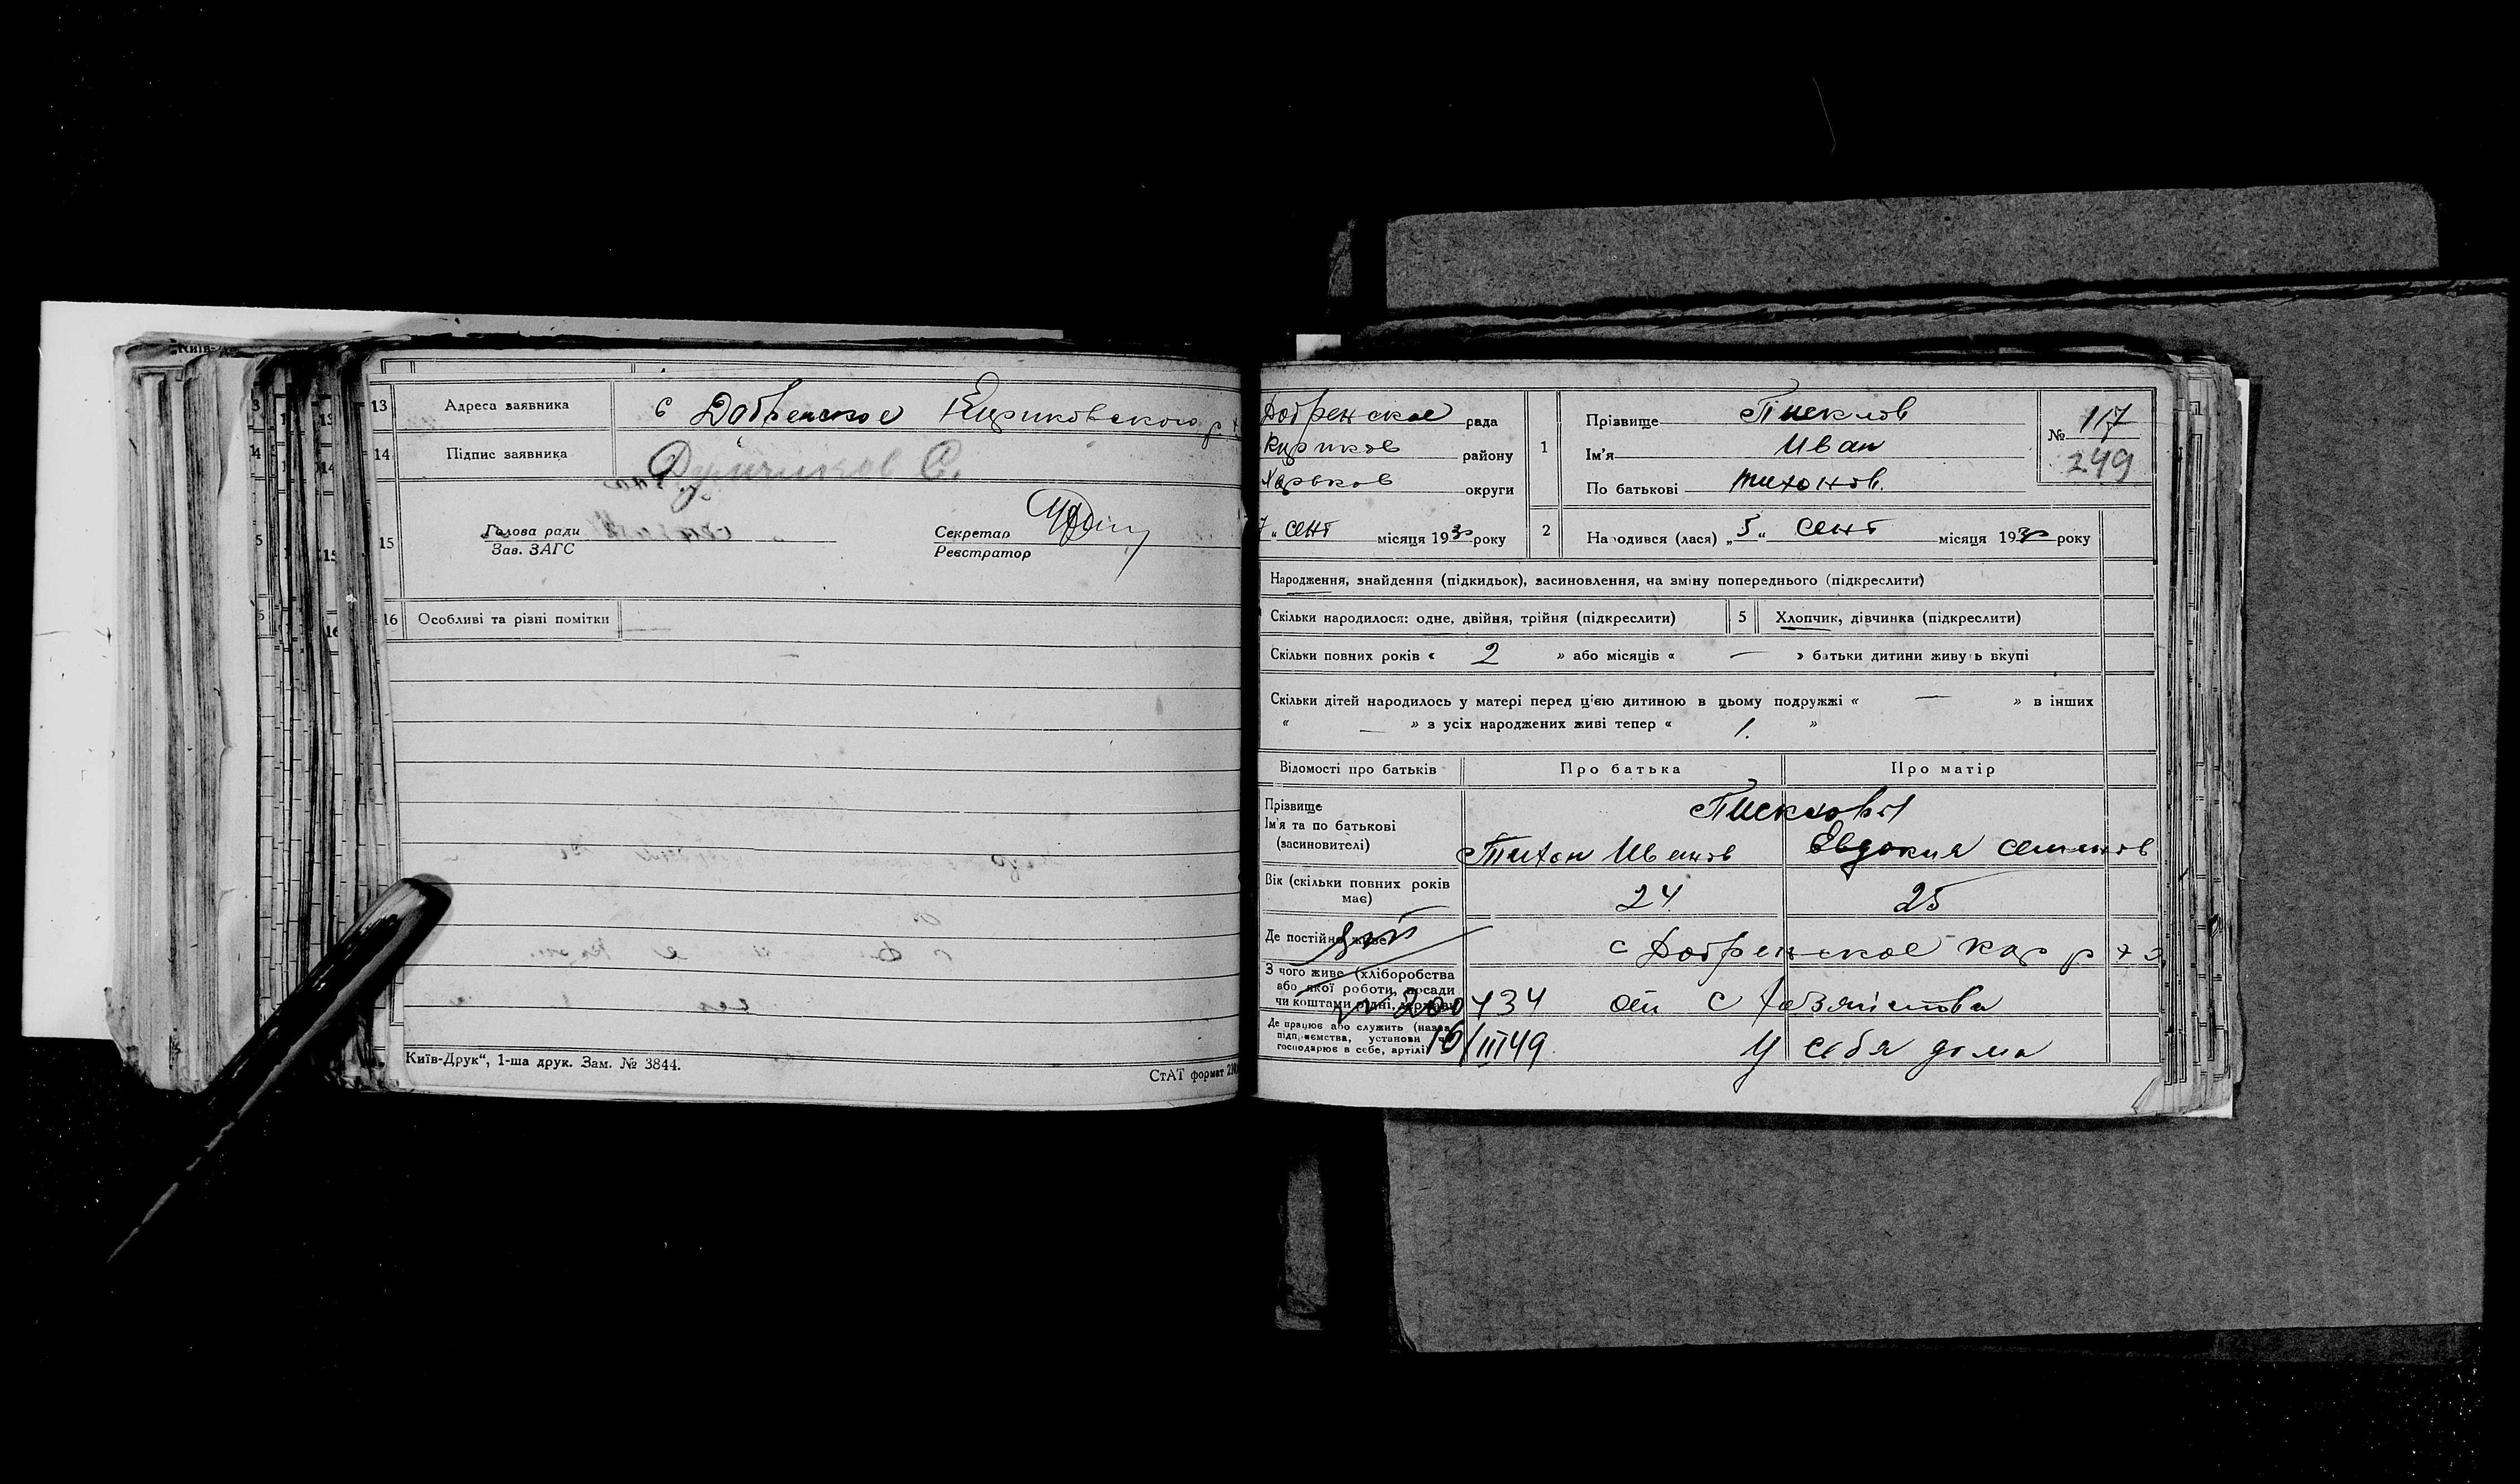 13 Адреса заявника с Добренское Кириковского р
14 Підпис заявника
15 Голова ради
Зав. ЗАГС
Секретар
Реєстратор
16 Особливі та різні помітки
Київ-Друк“, 1-ша друк. Зам. № 3844.
СтАТ формат
Добренское рада
Кириков району
Харьков округи
7 „ сент місяця 1930 року
1 Прізвище Писклов
Ім'я Иван
По батькові Тихонов.
№ 117
249
2 Народився (лася) „5“ сент місяця 1930 року
Народження, знайдення (підкидьок), засиновлення, на зміну попереднього (підкреслити)
Скільки народилося: одне, двійня, трійня (підкреслити) 5 Хлопчик, дівчинка (підкреслити)
Скільки повних років « 2 » або місяців « — » батьки дитини живуть вкупі
Скільки дітей народилось у матері перед цією дитиною в цьому подружжі « — » в інших
« — » з усіх народжених живі тепер « 1. »
Відомості про батьків Про батька Про матір
Прізвище
Ім'я та по батькові
(засновителі)
Тихон Иванов Евдокия семенов
Вік (скільки повних років має) 24 25
Де постійно живе с Добренское
З чого живе (хліборобства
або якої роботи, посади
чи коштами рідні, держави
от с хозяйства
Де працює або служить (назва
підприємства, установи
господарює в себе, артілі
16/III 49 У себя дома